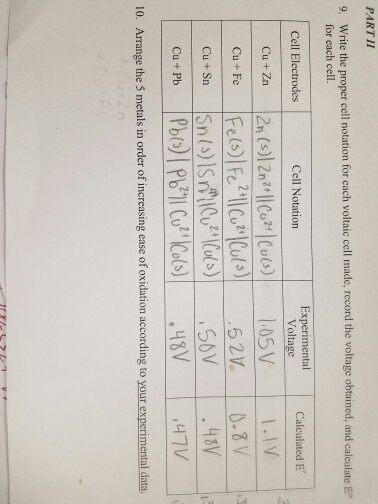 PART II
9. Write the proper cell notation for each voltaic cell made, record the voltage obtained, and calculate E°
for each cell.
Cell Electrodes Cell Notation Experimental Voltage Calculated E°
Cu + Zn Zn(s)|Zn²⁺||Cu²⁺|Cu(s) 1.05V 1.1V
Cu + Fe Fe(s)|Fe²⁺||Cu²⁺|Cu(s) .52V 0.8V
Cu + Sn Sn(s)|Sn²⁺||Cu²⁺|Cu(s) .50V .48V
Cu + Pb Pb(s)|Pb²⁺||Cu²⁺|Cu(s) .48V .47V
10. Arrange the 5 metals in order of increasing ease of oxidation according to your experimental data.